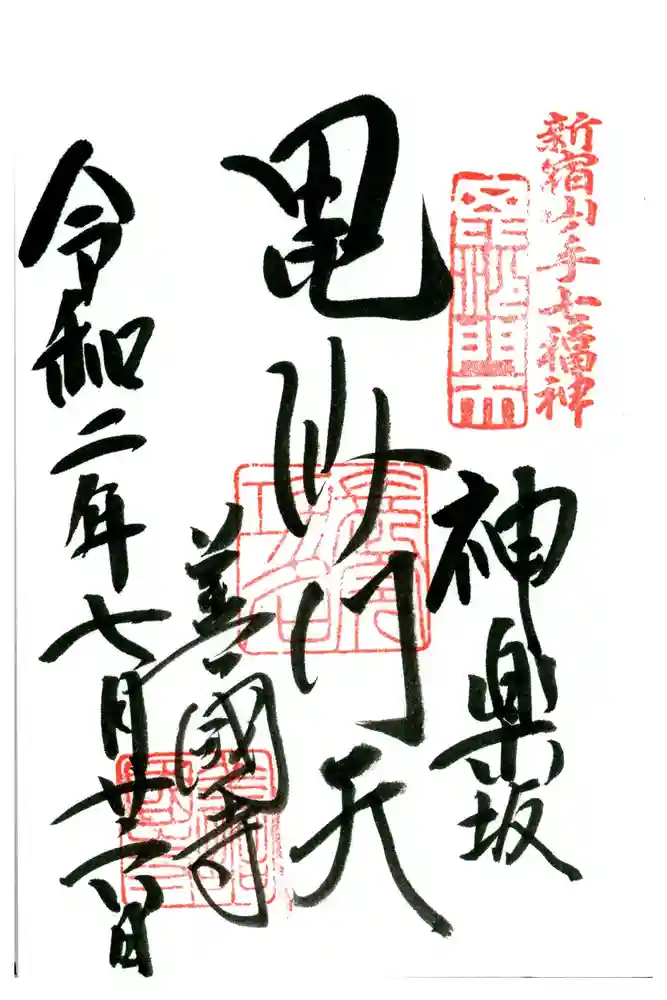 新宿山ノ手七福神
神楽坂
毘沙門天
善國寺
令和二年七月廿六日